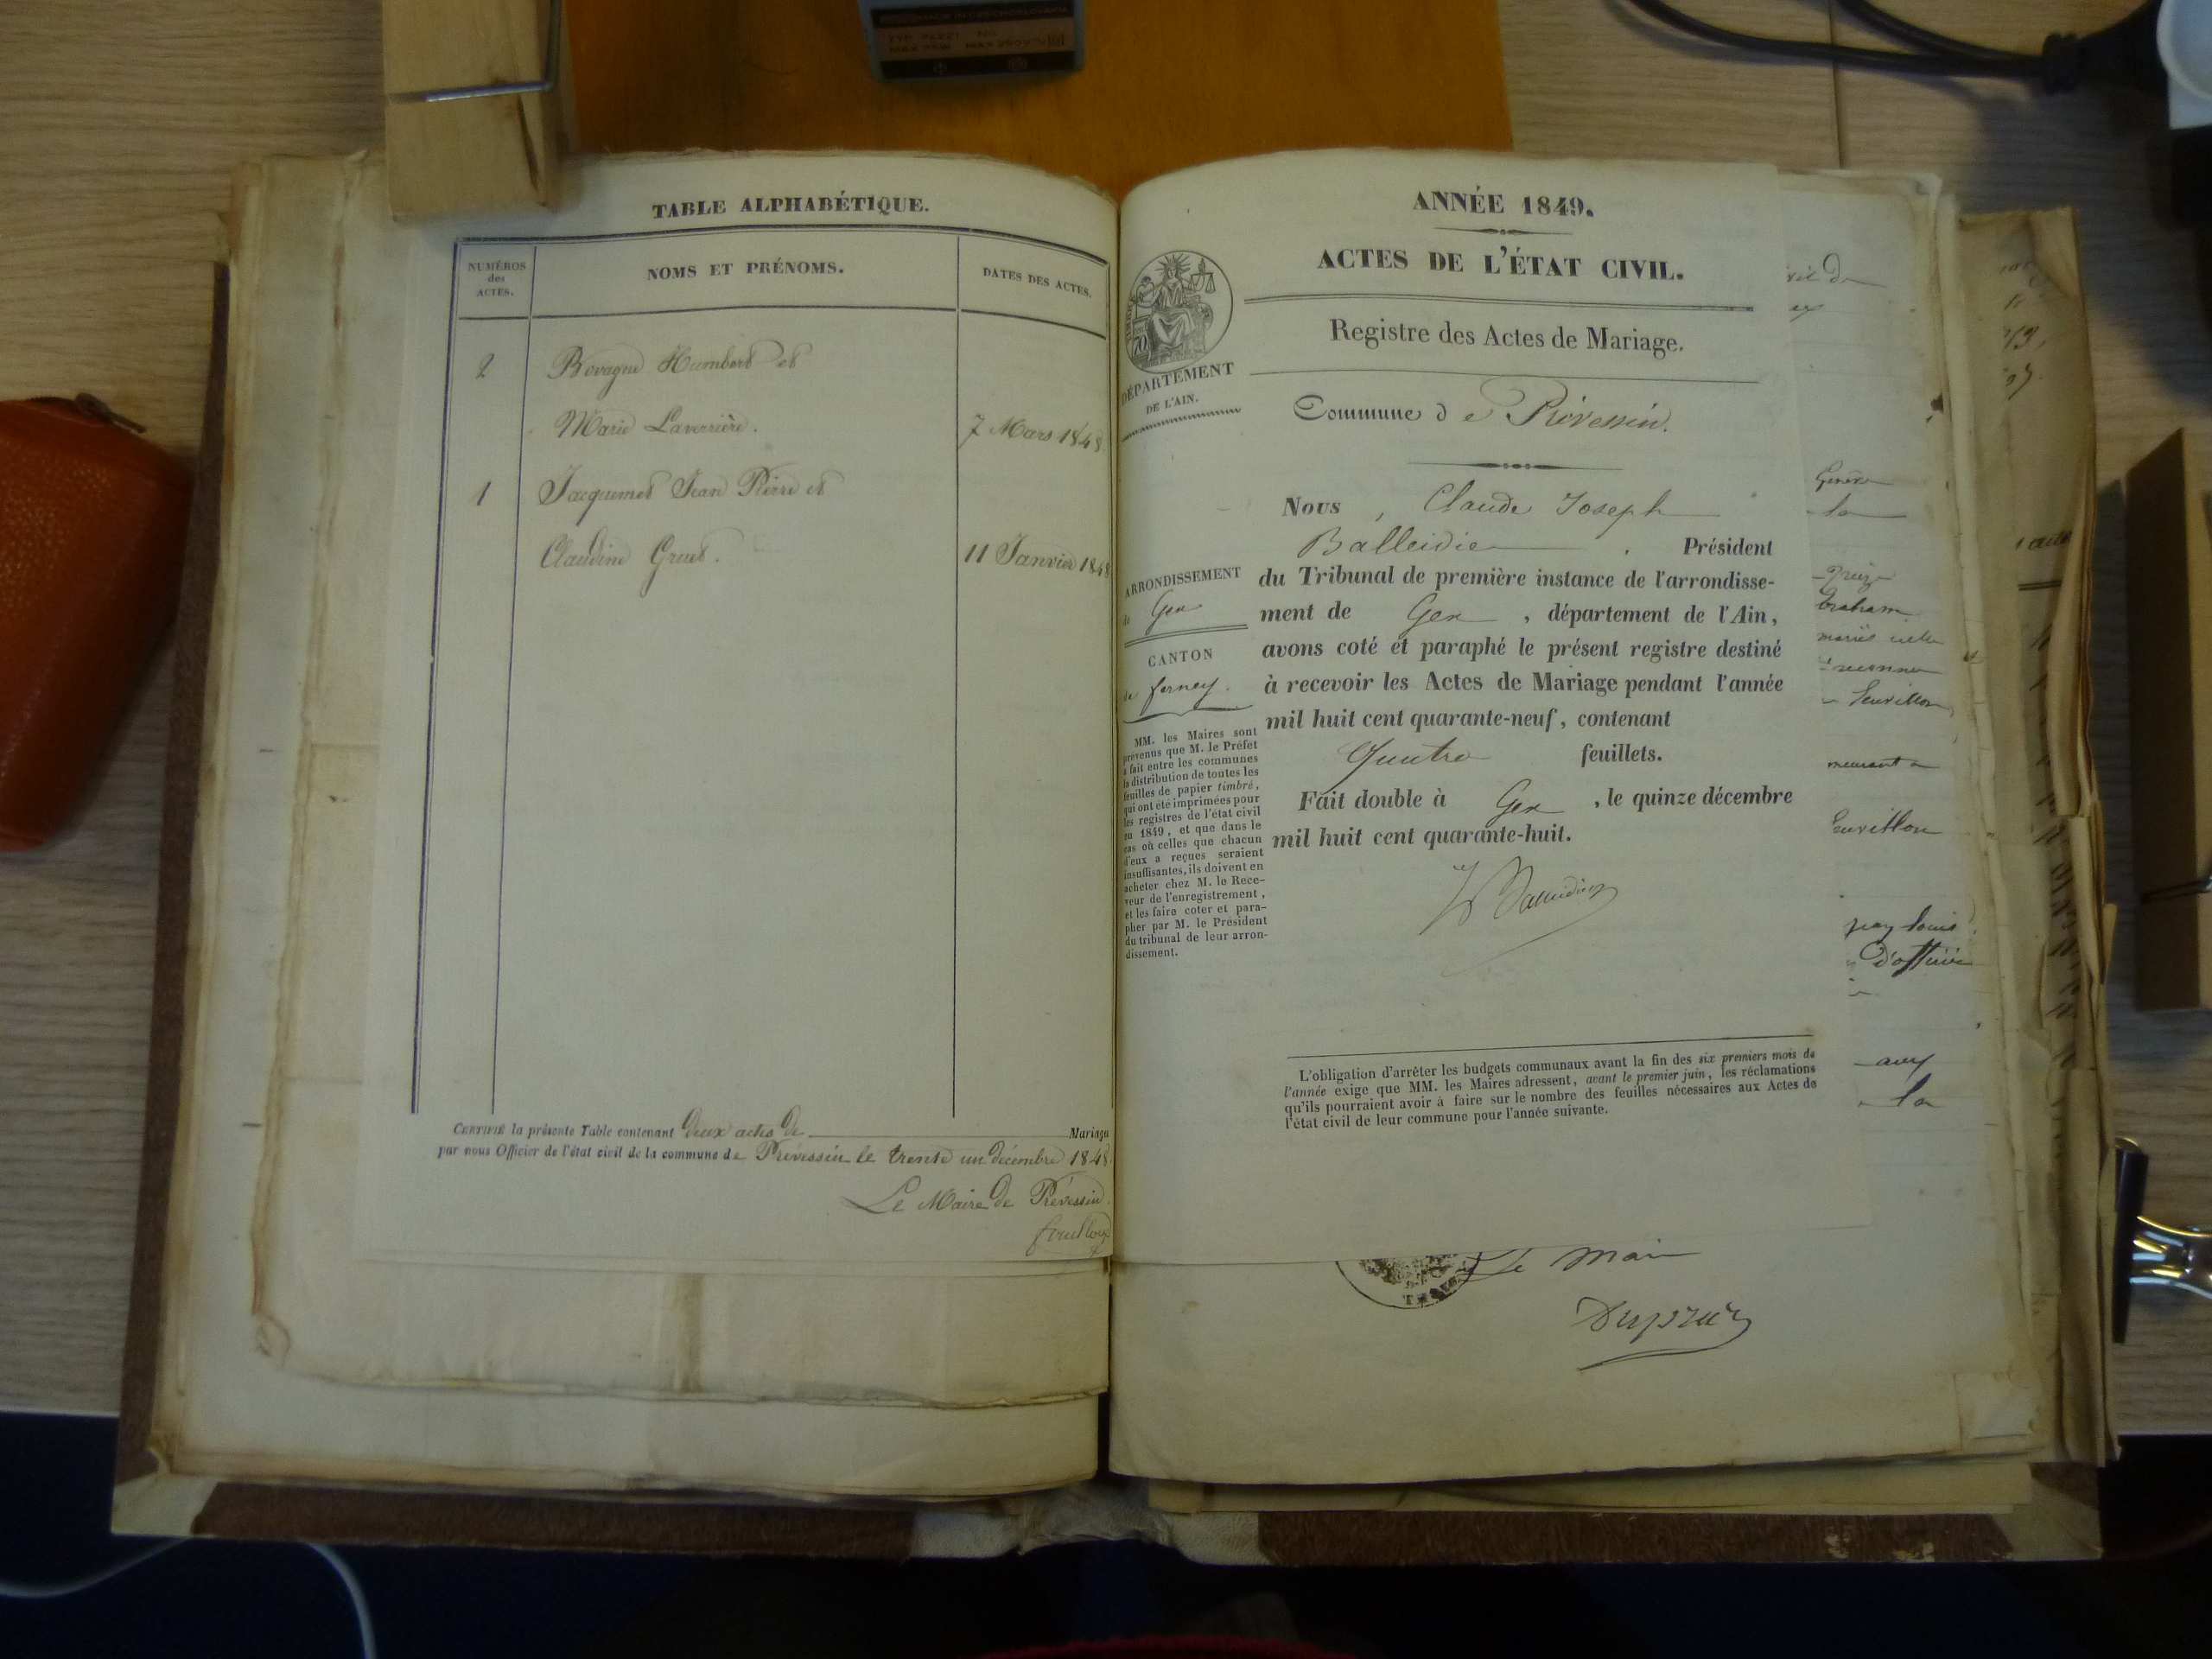 TABLE ALPHABÉTIQUE.
NUMÉROS
des
ACTES.
NOMS ET PRÉNOMS.
DATES DES ACTES.
2 Bovagne Humbert et
Marie Laverrière. 7 Mars 1848
1 Jacquemet Jean Pierre et
Claudine Gruet. 11 Janvier 1848
CERTIFIÉ la présente Table contenant deux actes de Mariage
par nous Officier de l'état civil de la commune de Prévessin le trente un décembre 1848.
Le Maire de Prévessin.
ANNÉE 1849.
ACTES DE L'ÉTAT CIVIL.
Registre des Actes de Mariage.
70
DÉPARTEMENT
DE L'AIN.
Commune de Prévessin.
Nous, Claude Joseph
Balleidier. Président
du Tribunal de première instance de l'arrondisse-
ment de Gex, département de l'Ain,
avons coté et paraphé le présent registre destiné
à recevoir les Actes de Mariage pendant l'année
mil huit cent quarante-neuf, contenant
Quatre feuillets.
Fait double à Gex, le quinze décembre
mil huit cent quarante-huit.
ARRONDISSEMENT
de Gex
CANTON
de ferney.
MM. les Maires sont
prévenus que M. le Préfet
a fait entre les communes
la distribution de toutes les
feuilles de papier timbré,
qui ont été imprimées pour
les registres de l'état civil
en 1849, et que dans le
cas où celles que chacun
d'eux a reçues seraient
insuffisantes, ils doivent en
acheter chez M. le Rece-
veur de l'enregistrement,
et les faire coter et para-
pher par M. le Président
du tribunal de leur arron-
dissement.
L'obligation d'arrêter les budgets communaux avant la fin des six premiers mois de
l'année exige que MM. les Maires adressent, avant le premier juin, les réclamations
qu'ils pourraient avoir à faire sur le nombre des feuilles nécessaires aux Actes de
l'état civil de leur commune pour l'année suivante.
la
la